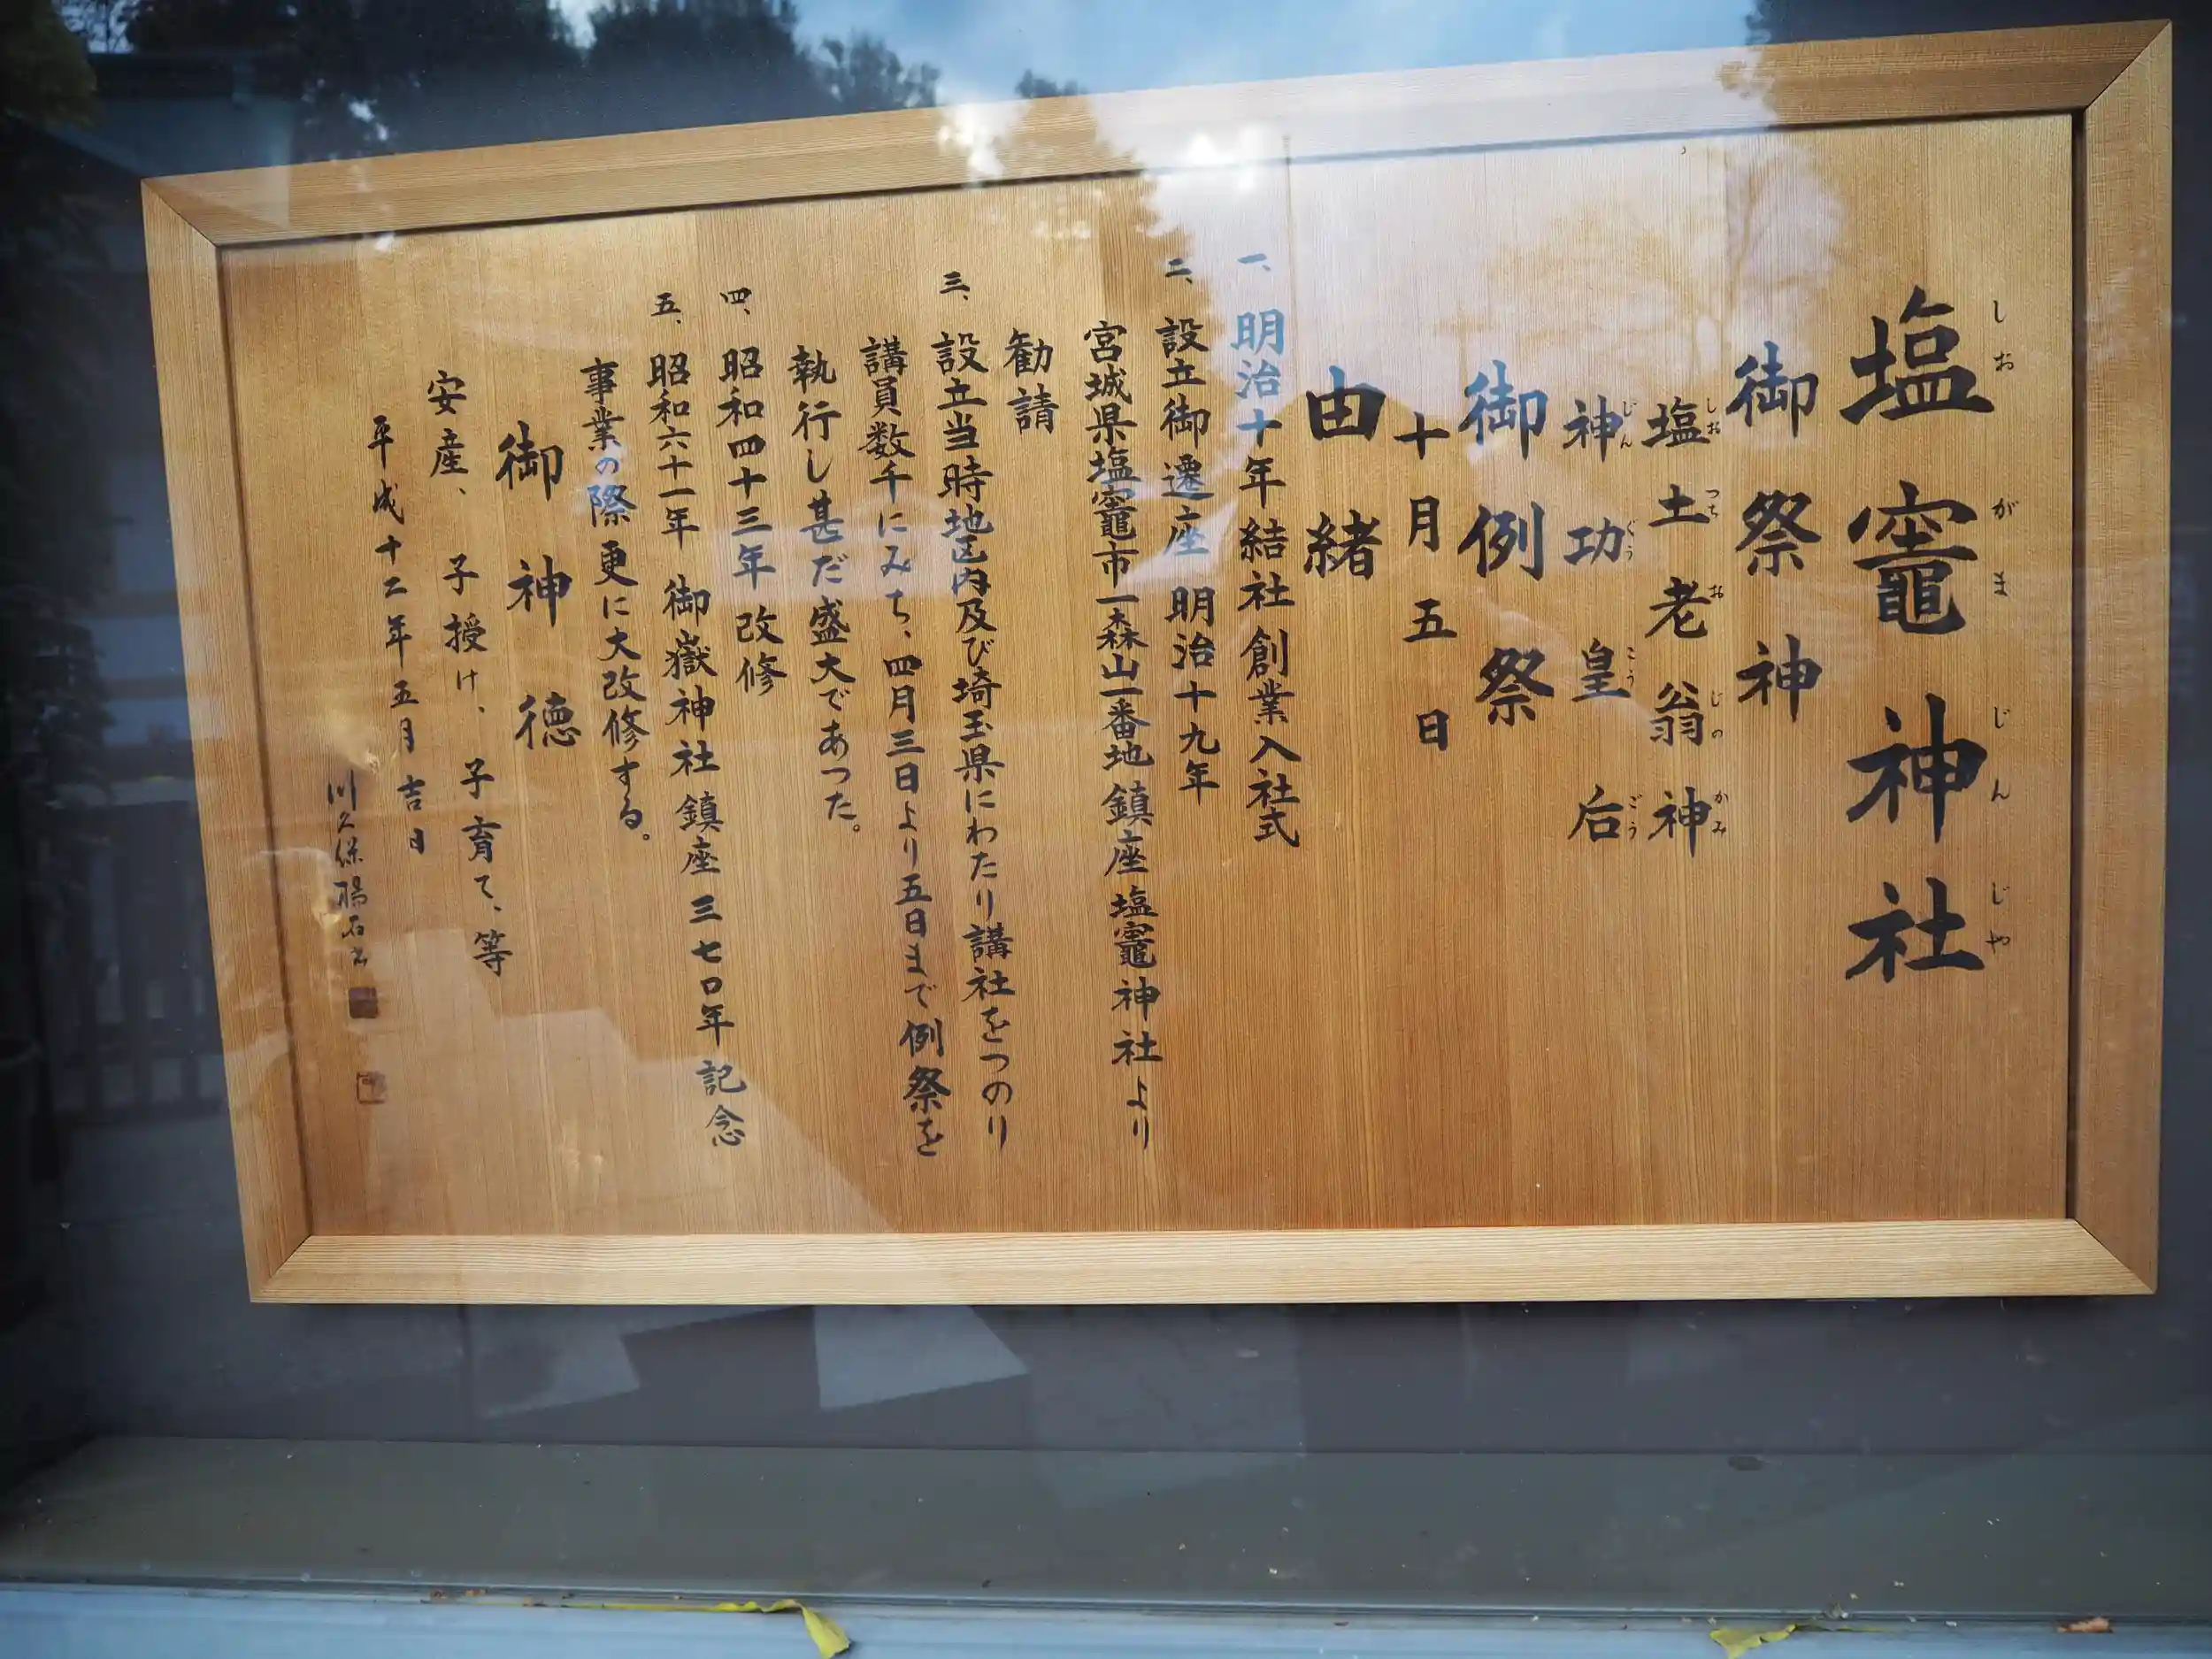 塩竈神社
しおがまじんじゃ
御祭神
塩土老翁神
しおつちおじのかみ
神功皇后
じんぐうこうごう
御例祭
十月五日
由緒
一、明治十年結社 創業入社式
二、設立御遷座 明治十九年
宮城県塩竈市一森山一番地 鎮座塩竈神社より
勧請
三、設立当時地区内及び埼玉県にわたり講社をつのり
講員数千にみち、四月三日より五日まで例祭を
執行し甚だ盛大であつた。
四、昭和四十三年 改修
五、昭和六十一年 御嶽神社 鎮座三七〇年 記念
事業の際 更に大改修する。
御神徳
安産、子授け、子育て、等
平成十二年五月吉日
川久保陽石書